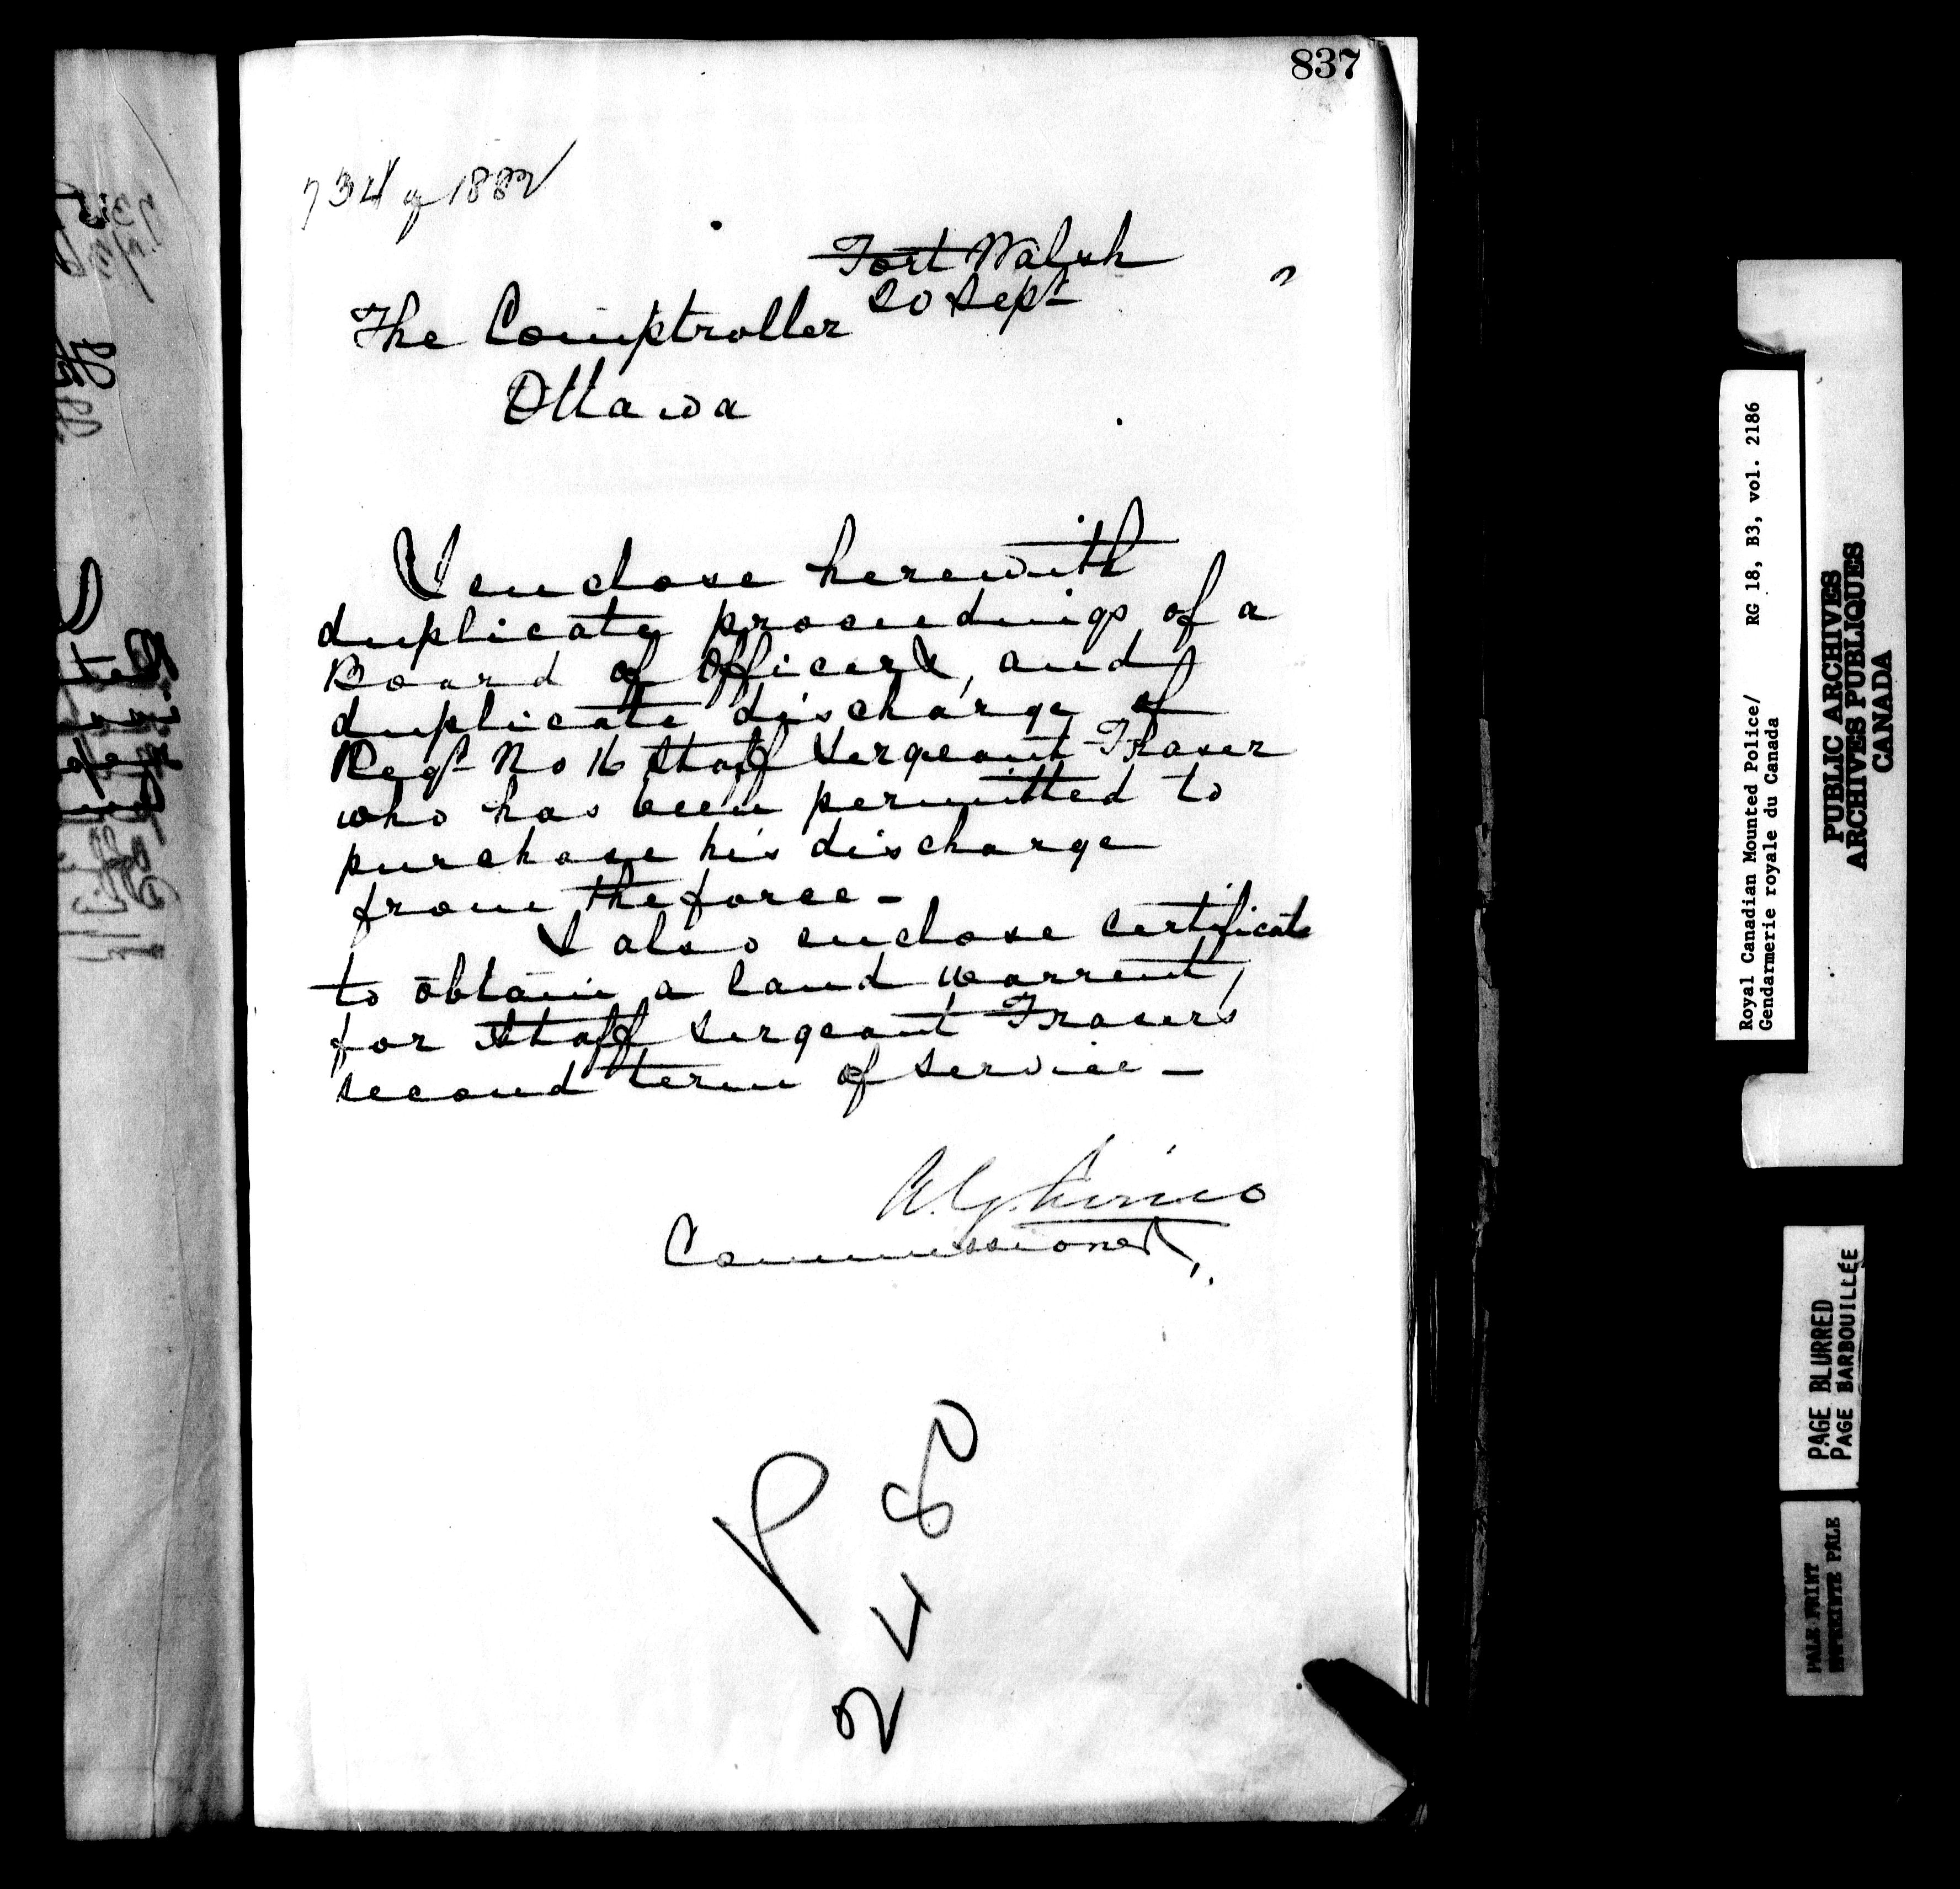 837
734 of 1882
Fort Walsh
20 Sept 2
The Comptroller
Ottawa
I enclose herewith
duplicate proceedings of a
Board of Officers, and
duplicate discharge of
Regt No 16 Staff Sergeant Fraser
who has been permitted to
purchase his discharge
from the force -
I also enclose certificate
to obtain a land warrent,
for Staff Sergeant Fraser's
second term of service -
A.G. Irvine
Commissioner,
P
2480
Royal Canadian Mounted Police/ RG 18, B3, vol. 2186
Gendarmerie royale du Canada
PUBLIC ARCHIVES
ARCHIVES PUBLIQUES
CANADA
PAGE BLURRED
PAGE BARBOUILLÉE
PALE PRINT
EPREINTE PALE